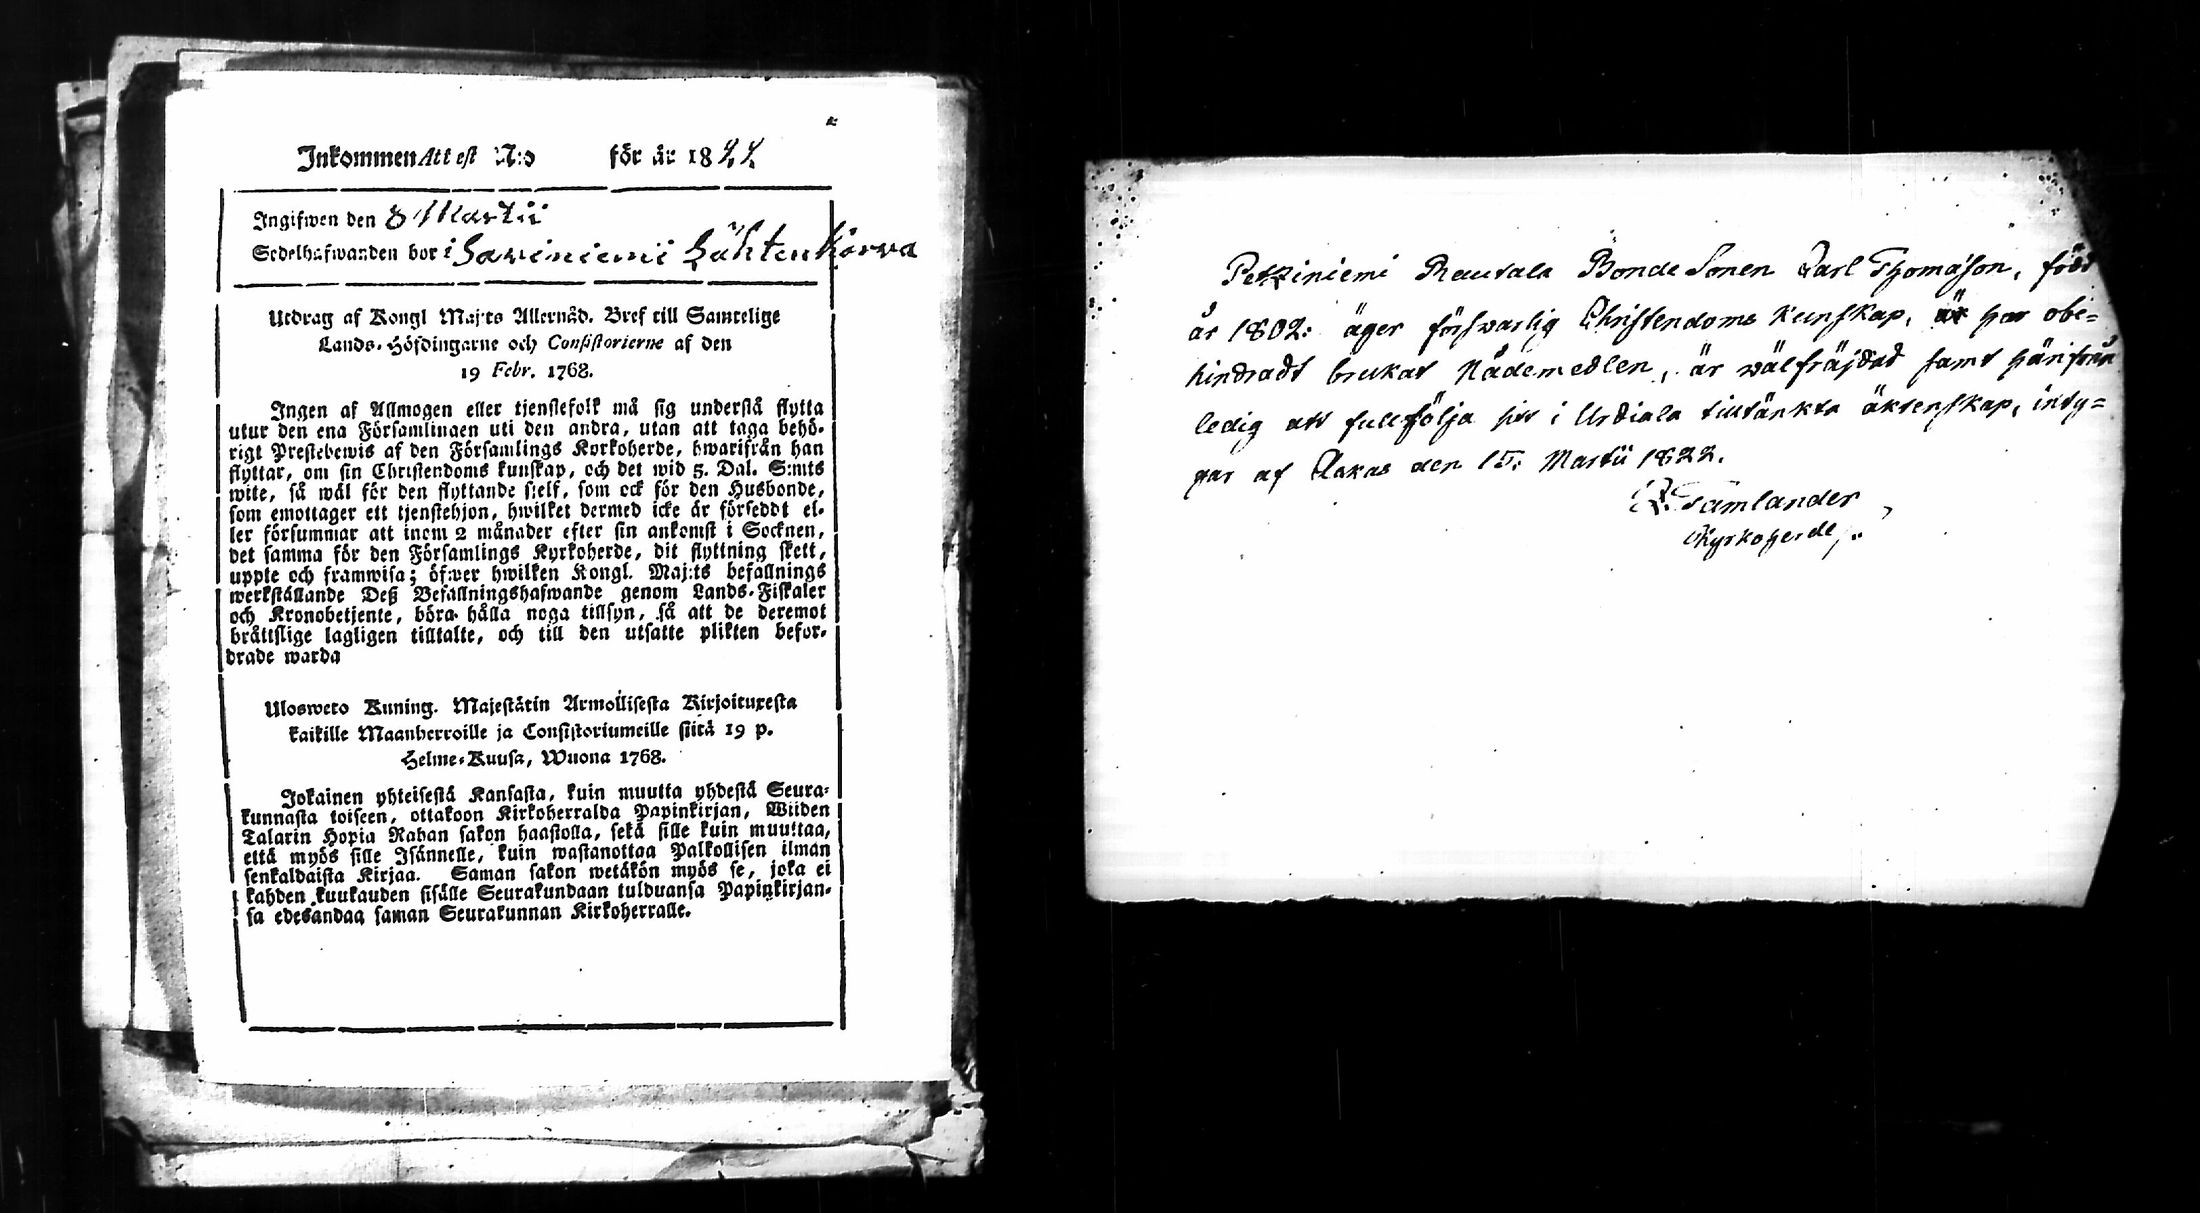 Inkommen Attest N:o för år 1822
Ingifwen den 8 Martii
Sedelhafwanden bor i Saviniemi Lähtenkorva
Utdrag af Kongl Maj:ts Allernåd. Bref till Samtelige
Lands-Höfdingarne och Consistorierne af den
19 Febr. 1768.
Ingen af Allmogen eller tjenstefolk må sig understå flytta
utur den ena Församlingen uti den andra, utan att taga behö-
rigt Prestebewis af den Församlings Kyrkoherde, hwarifrån han
flyttar, om sin Christendoms kunskap, och det wid 5. Dal. S:mts
wite, så wäl för den flyttande sjelf, som ock för den Husbonde,
som emottager ett tjenstehjon, hwilket dermed icke är förseddt el-
ler försummar att inom 2 månader efter sin ankomst i Socknen,
det samma för den Församlings Kyrkoherde, dit flyttning skett,
uppte och framwisa; öfwer hwilken Kongl. Maj:ts befallnings
werkställande Deß Befallningshafwande genom Lands-Fiskaler
och Kronobetjente, böra hålla noga tillsyn, så att de deremot
bråttslige lagligen tilltalte, och till den utsatte plikten befor-
drade warda
Ulosweto Kuning. Majestätin Armollisesta Kirjoituxesta
kaikille Maanherroille ja Consistoriumeille siitä 19 p.
Helme-Kuusa, Wuona 1768.
Jokainen yhteisestä Kansasta, kuin muutta yhdestä Seura-
kunnasta toiseen, ottakoon Kirkoherralda Papinkirjan, Wiiden
Talarin Hopia Rahan sakon haastolla, sekä sille kuin muuttaa,
että myös sille Isännelle, kuin wastanottaa Palkollisen ilman
senkaldaista Kirjaa. Saman sakon wetäkön myös se, joka ei
kahden kuukauden sisälle Seurakundaan tulduansa Papinkirjan-
sa edesandaa saman Seurakunnan Kirkoherralle.
Petziniemi Rautala Bonde Sonen Carl Thomasson, född
år 1802: äger förswarlig Christendoms kunskap, har obe=
hindradt brukat Nådemedlen, är wälfräjdad samt härifrån
ledig att fullfölja sitt i Urdiala tilltänkta äktenskap, inty=
gar af Akas den 15: Martii 1822.
Tamlander
Kyrkoherde